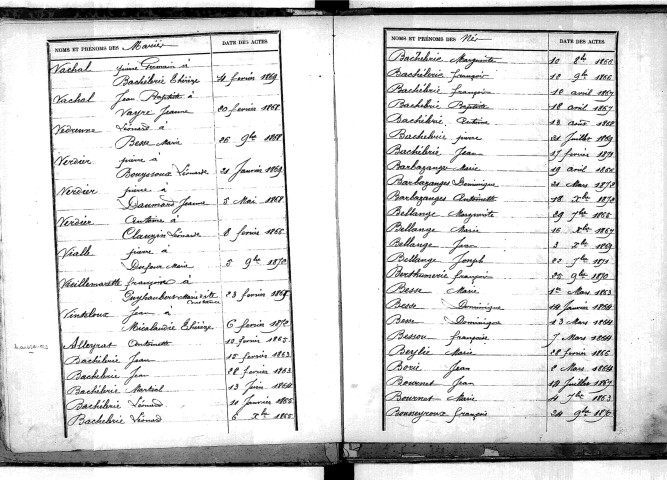 NOMS ET PRÉNOMS DES Mariés DATE DES ACTES
Vachal pierre Germain à
Bachélerie Thérèze 21 fevrier 1869
Vachal Jean Baptiste à
Vayre Jeanne 20 fevrier 1868
Vedrenne Léonard à
Besse Marie 26 9bre 1868
Verdier pierre à
Bouyssoux Léonarde 21 Janvier 1869
Verdier pierre à
Daumard Jeanne 5 Mai 1868
Verdier Antoine à
Clauzin Léonarde 8 fevrier 1866
Vialle pierre à
Marie 5 9bre 1872
françois à
Marie 23 fevrier
Jean à
Thérèze 6 fevrier 1872
naissances
Alleyrat Antoinette 12 fevrier 1865
Bachélerie Jean 15 fevrier 1863
Bachélerie Jean 22 fevrier 1863
Bachélerie Martial 13 Juin 1864
Bachélerie Léonard 10 Janvier 1866
Bachelerie Léonard 6 Xbre 1866
NOMS ET PRÉNOMS DES Nés DATE DES ACTES
Bachélerie Marguerite 10 8bre 1866
Bachélerie françois 10 9bre 1866
Bachélerie françoise 10 avril 1867
Bachélerie Baptiste 18 avril 1867
Bachélerie Antoine 13 aout 1868
Bachelerie pierre 21 Juillet 1869
Bachélerie Jean 27 fevrier 1872
Barbazange Marie 19 avril
Barbazanges Dominique 21 Mars 1870
Barbazanges Antoinette 18 Xbre 1872
Bellange Marguerite 29 7bre 1865
Bellange Marie 16 Xbre 1867
Bellange Jean 3 Xbre 1869
Bellange Joseph 22 7bre 1872
Berthoumerie françoise 25 9bre 1870
Besse Marie 1er Mars 1863
Besse Dominique 14 Janvier 1864
Besse Dominique 13 Mars 1864
Bessou françoise 7 Mars 1864
Marie 28 fevrier 1866
Borie Jean 8 Mars 1864
Bournet Jean 14 Juillet 1867
Bournet Marie 4 7bre 1863
Bousseyroux françois 24 9bre